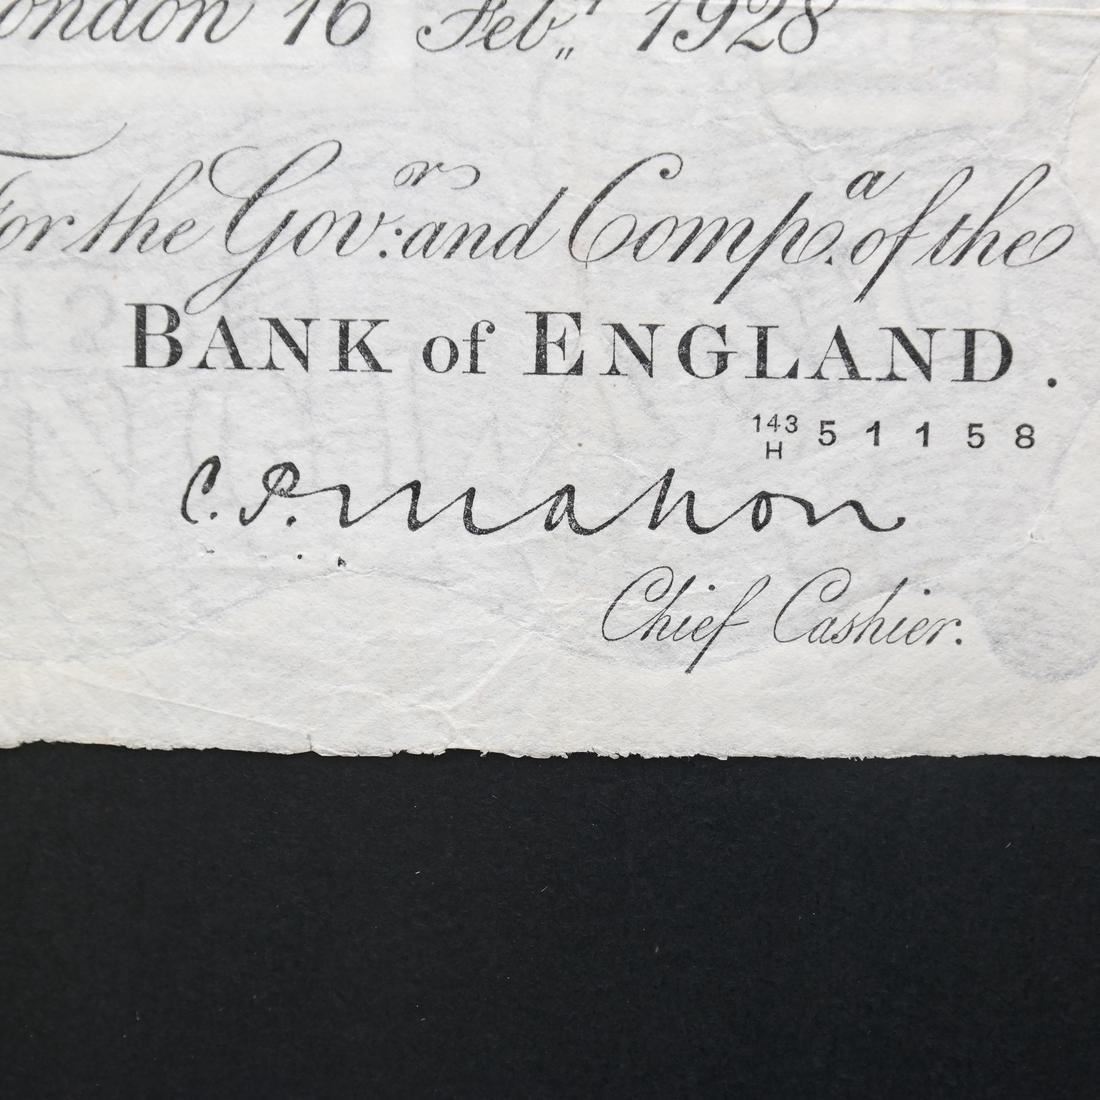 ondon 16 Feb.ʸ 1928
For the Gov.ᵒʳ: and Comp.ᵃ of the
BANK of ENGLAND.
143/H 51158
C. P. Mahon
Chief Cashier.